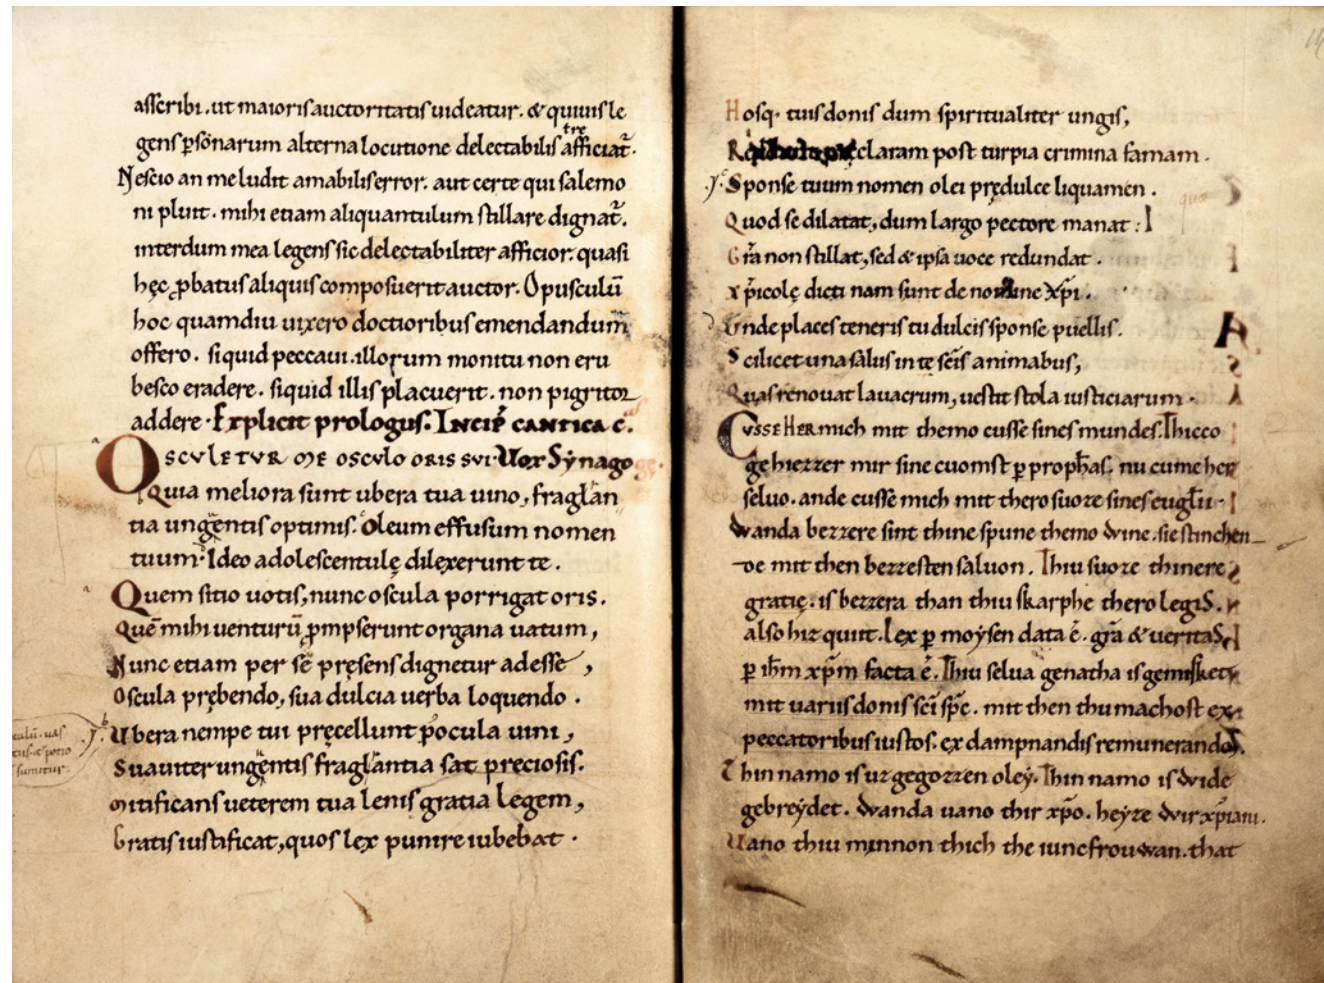 asscribi. ut maioris auctoritatis uideatur. & quiuis le
gens ꝑsonarum alterna locutione delectabilis afficiat̃.
tre
Nescio an me ludit amabilis error. aut certe qui salemo
ni pluit. mihi etiam aliquantulum stillare dignat̃.
interdum mea legens sic delectabiliter afficior. quasi
hęc ꝓbatus aliquis composuerit auctor. Opusculū
hoc quamdiu uixero doctioribus emendandum
offero. siquid peccaui. illorum monitu non eru
besco eradere. siquid illis placuerit. non pigritor
addere. Explicit prologus. Incip̃ cantica c.
Osculetur me osculo oris sui. Uox Synago
Quia meliora sunt ubera tua uino, fraglan
tia ungentis optimis. Oleum effusum nomen
tuum. Ideo adolescentulę dilexerunt te.
Quem sitio uotis, nunc oscula porrigat oris.
Quē mihi uenturū ꝓmpserunt organa uatum,
Nunc etiam per sē pręsens dignetur adesse,
Oscula prębendo, sua dulcia uerba loquendo.
Ubera nempe tui pręcellunt pocula uini,
Suauiter ungentis fraglantia sat preciosis.
Mitificans ueterem tua lenis gratia legem,
Gratis iustificat, quos lex punire iubebat.
sumitur.
Hosq. tuis donis dum spiritualiter ungis,
claram post turpia crimina famam.
Sponse tuum nomen olei prędulce liquamen.
Quod se dilatat, dum largo pectore manat:
Gr̃a non stillat, sed & ipsa uoce redundat.
Xp̃icolę dicti nam sunt de nomine Xp̃i.
Unde places teneris tu dulcis sponse puellis.
Scilicet una salus in te sc̃is animabus,
Quas renouat lauacrum, uestit stola iusticiarum.
Cusse her mich mit themo cusse sines mundes. Thicco
gehiezzer mir sine cuomst ꝑ proph̃as. nu cume her
seluo. ande cusse mich mit thero suoze sines euglii.
Wanda bezzere sint thine spune themo wine. sie stinchen
de mit then bezzesten saluon. Thiu suoze thinere
gratię. is bezzera than thiu skarphe thero legis.
also hiz quit. Lex ꝑ moẏsen data ē. gr̃a & ueritas
ꝑ ih̃m xp̃m facta ē. Thiu selua genatha is gemisket
mit uariis donis sc̃i sp̃c. mit then thu machost ex
peccatoribus iustos. ex dampnandis remunerandos.
Thin namo is uz gegozzen oleẏ. Thin namo is wide
gebreẏdet. Wanda uano thir xp̃o. heẏze wir xp̃iani.
Uano thiu minnon thich the iuncfrouwan. that